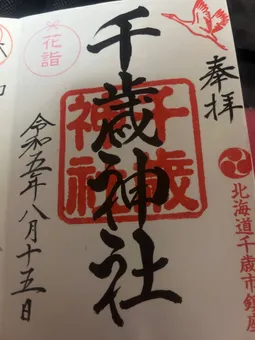 奉拝
北海道千歳市鎮座
千歳神社
千歳神社
花詣
令和五年八月十五日